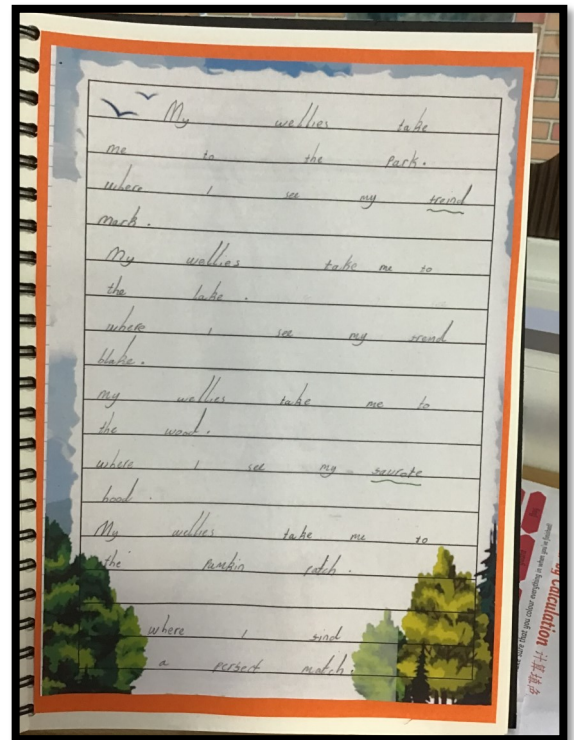 My wellies take
me to the park.
where I see my treind
mark.
My wellies take me to
the lake.
where I see my trend
blake.
my wellies take me to
the wood.
where I see my saurote
hood.
My wellies take me to
the Pumkin patch.
where I sind
a persect match.
Calculation 计算填色
sure that you colour everything in when you a finished